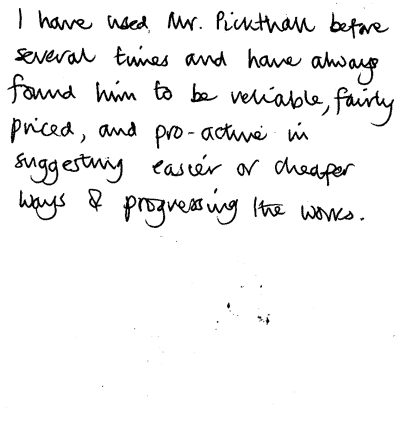 I have used Mr. Pickthall before
several times and have always
found him to be reliable, fairly
priced, and pro-active in
suggesting easier or cheaper
ways & progressing the works.